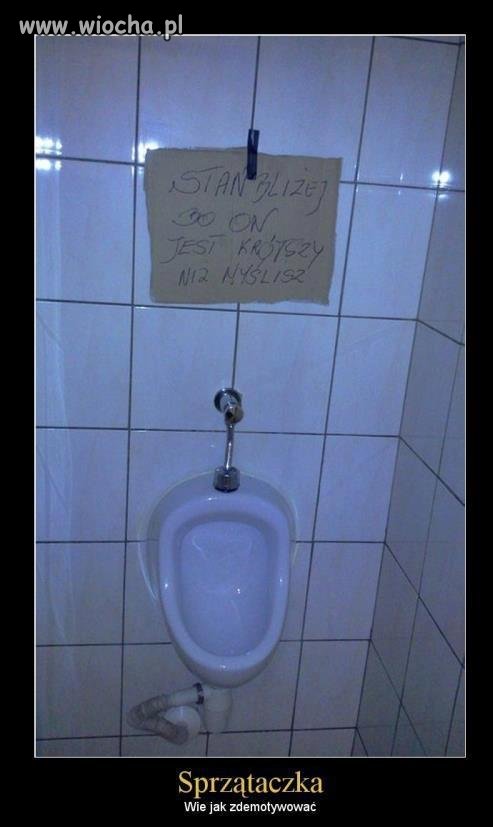 www.wiocha.pl
STAŃ BLIŻEJ
BO ON
JEST KRÓTSZY
NIŻ MYŚLISZ
Sprzątaczka
Wie jak zdemotywować